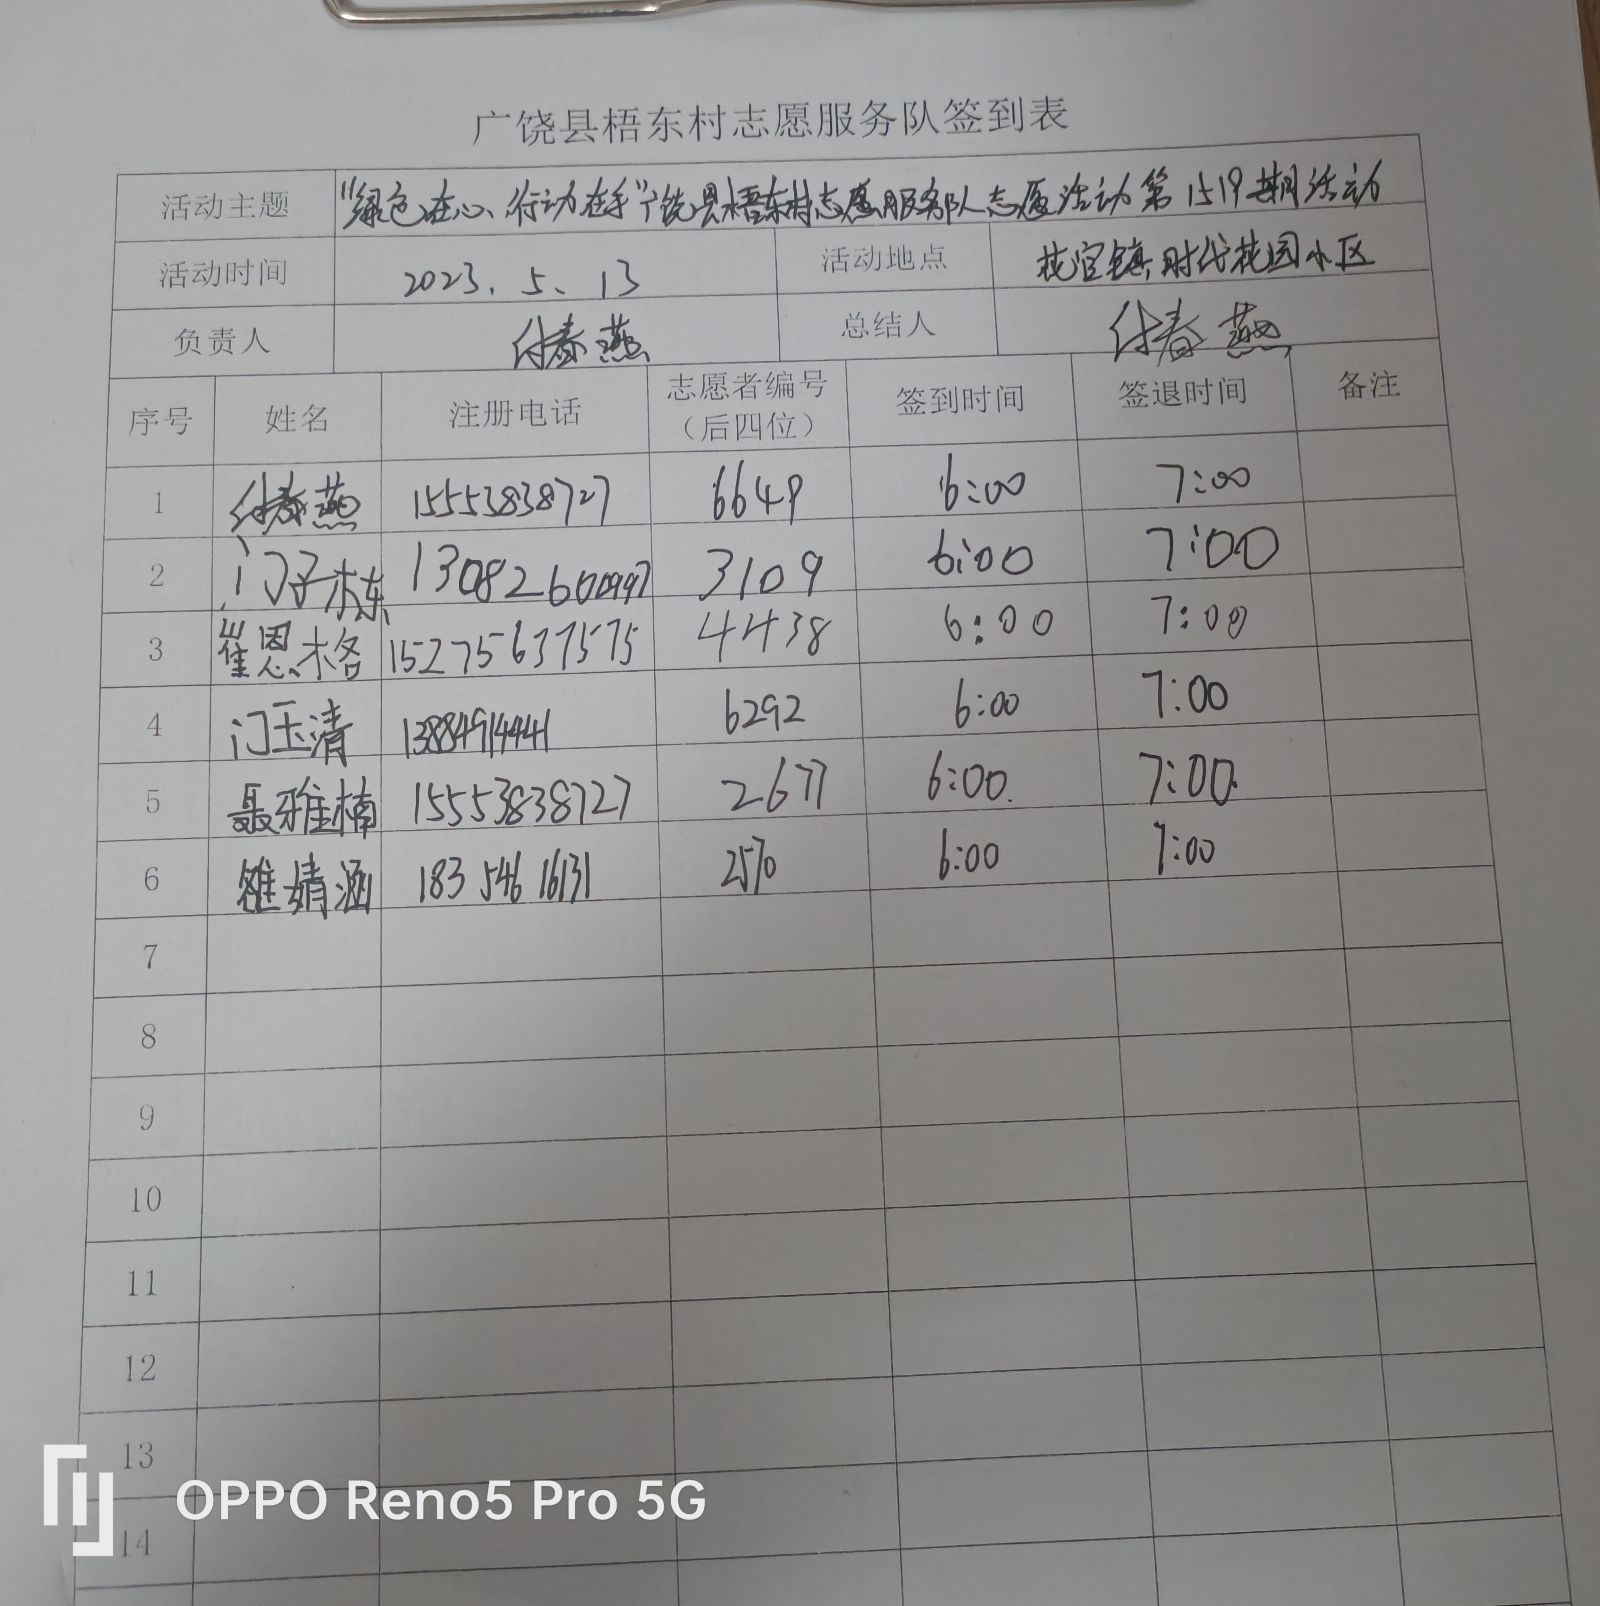 广饶县梧东村志愿服务队签到表
活动主题 "绿色在心、行动在手"广饶县梧东村志愿服务队志愿活动第1519期活动
活动时间 2023.5.13 活动地点 花官镇时代花园小区
负责人 付春燕 总结人 付春燕
序号 姓名 注册电话 志愿者编号（后四位） 签到时间 签退时间 备注
1 付春燕 15553838727 6649 6:00 7:00
2 门子栋 13082600997 3109 6:00 7:00
3 崔恩格 15275637575 4438 6:00 7:00
4 门玉清 13884914441 6292 6:00 7:00
5 聂雅楠 15553838727 2677 6:00 7:00
6 婧涵 18354616131 2570 6:00 7:00
7
8
9
10
11
12
13
14
OPPO Reno5 Pro 5G